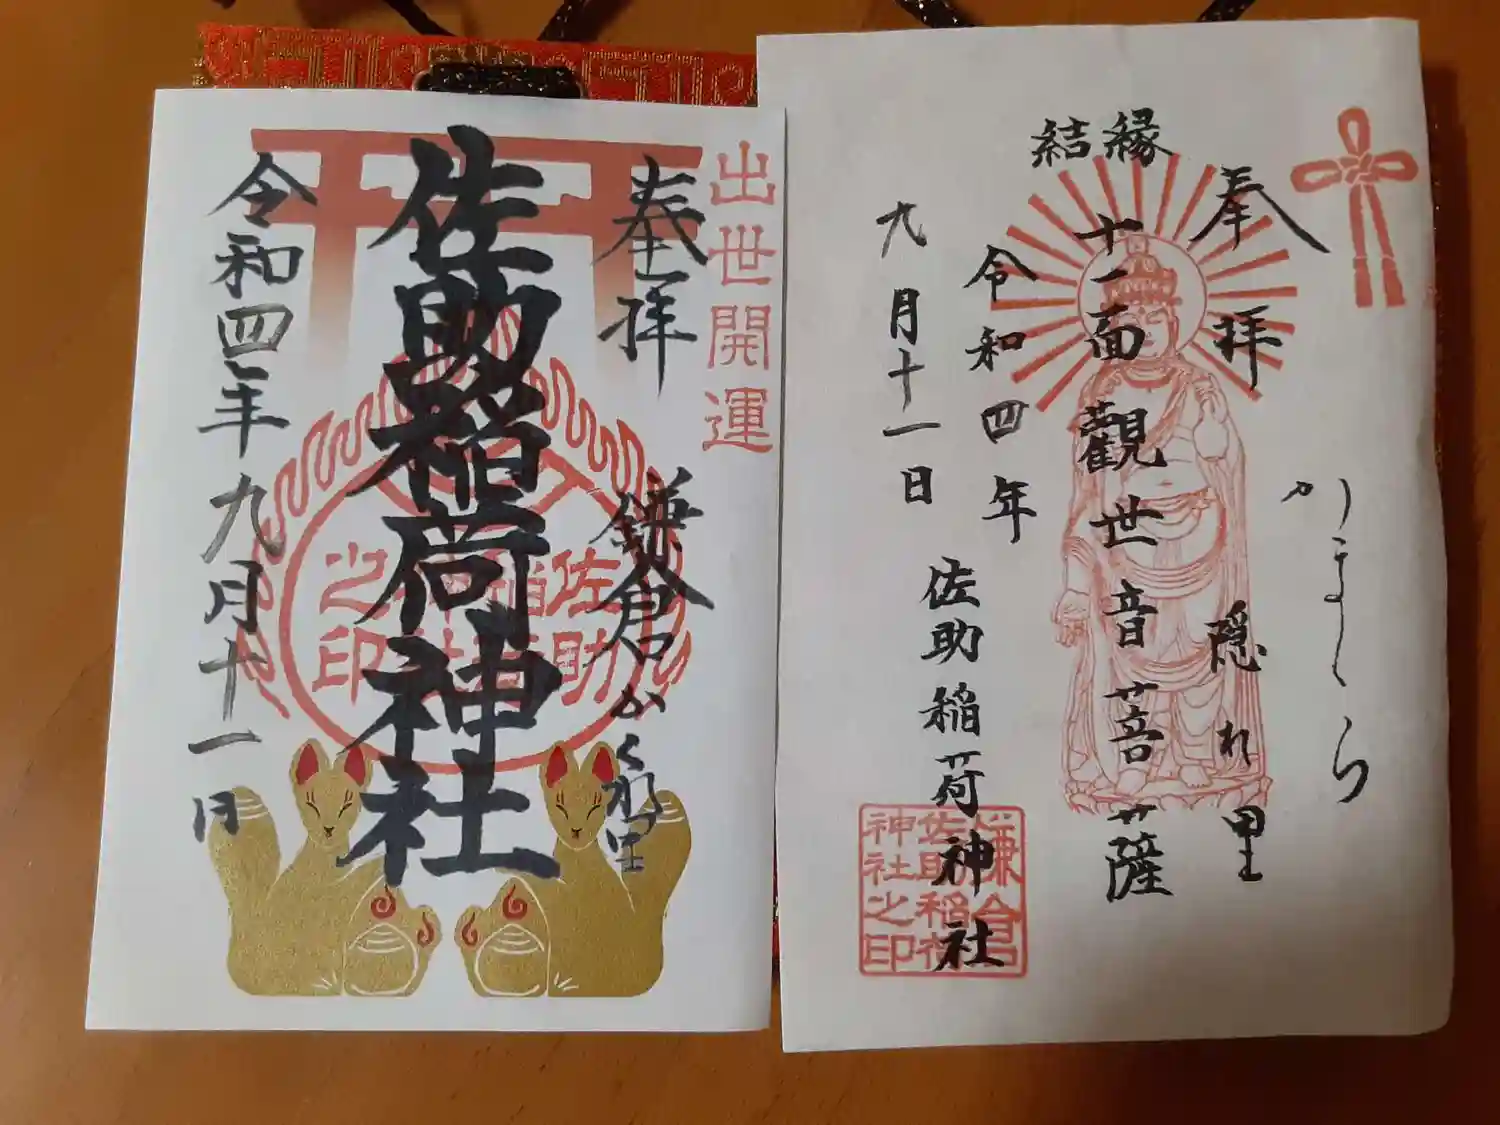 出世開運
奉拝
鎌倉かくれ里
佐助稲荷神社
佐助
稲荷
神社
之印
令和四年九月十一日
かまくら
隠れ里
奉拝
縁結
十一面觀世音菩薩
令和四年
九月十一日
佐助稲荷神社
鎌倉
佐助稲荷
神社之印